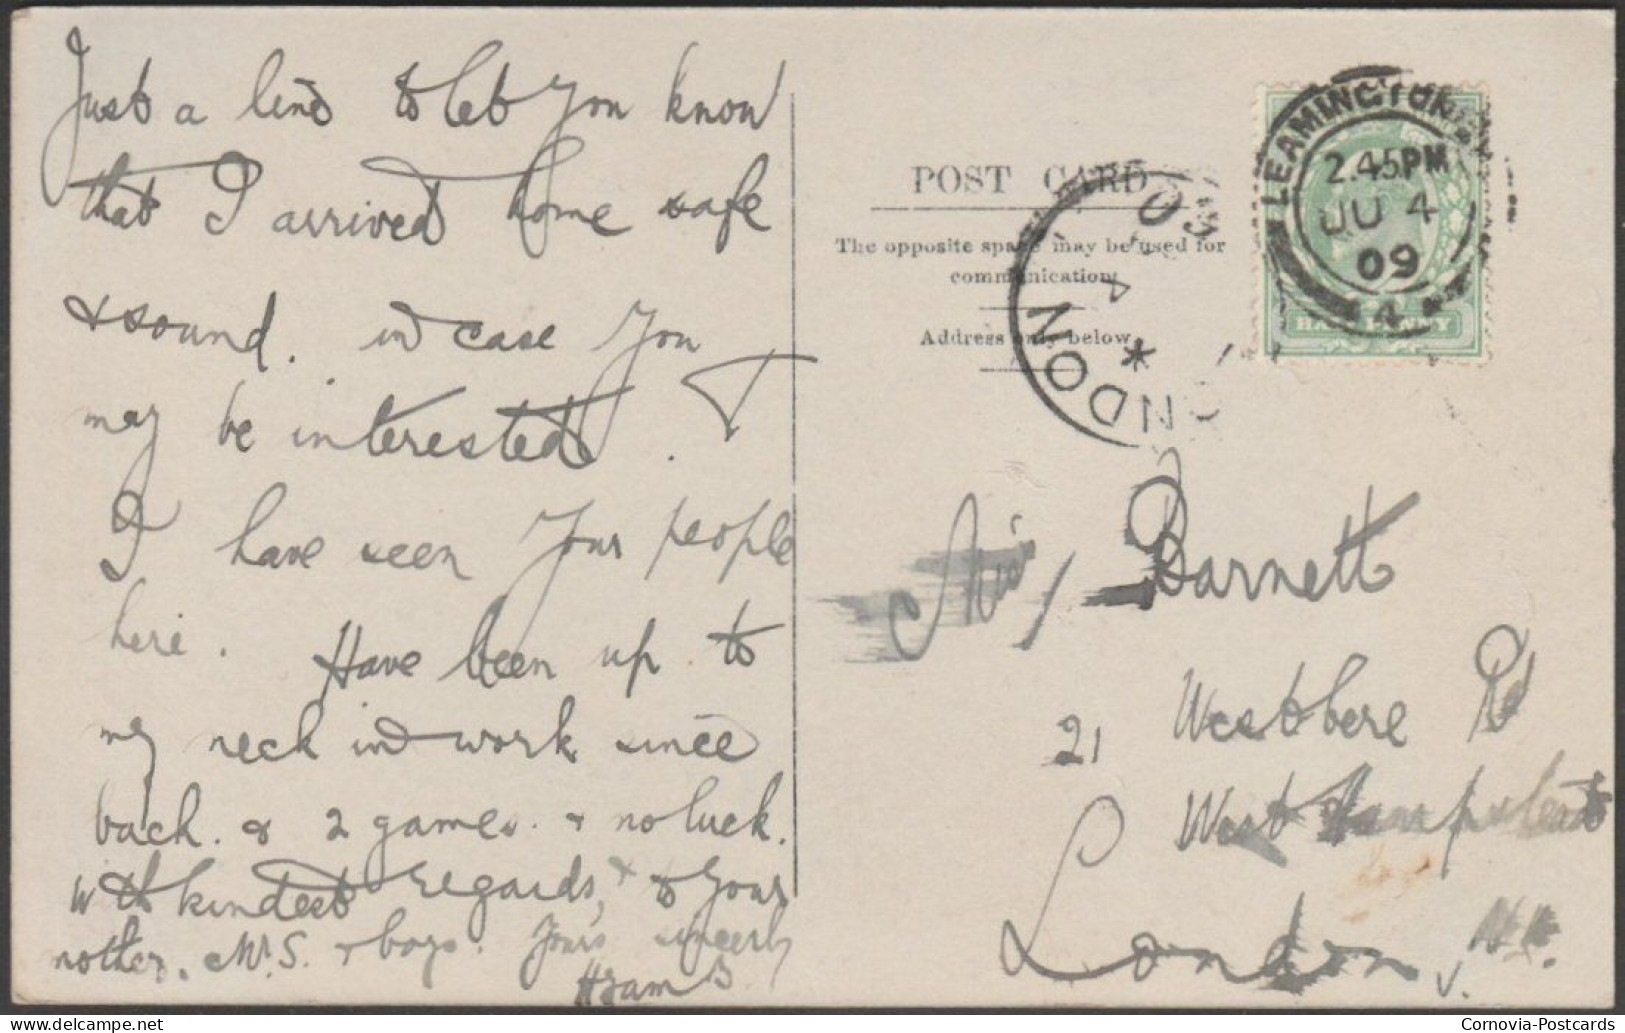 Just a line to let you know
that I arrived home safe
& sound. in case you
may be interested.
I have seen your people
here.
Have been up to
my neck in work since
back. & 2 games. & no luck.
with kindest regards, & to your
mother. Mr S. & boys. Yours sincerely
POST CARD
The opposite space may be used for
communication.
Address only below.
LEAMINGTON
2.45PM
JU 4
09
4
HALF PENNY
LONDON
09
Miss Barnett
21 Westbere Rd
West Hampstead
London, N.W.
Cornovia-Postcards